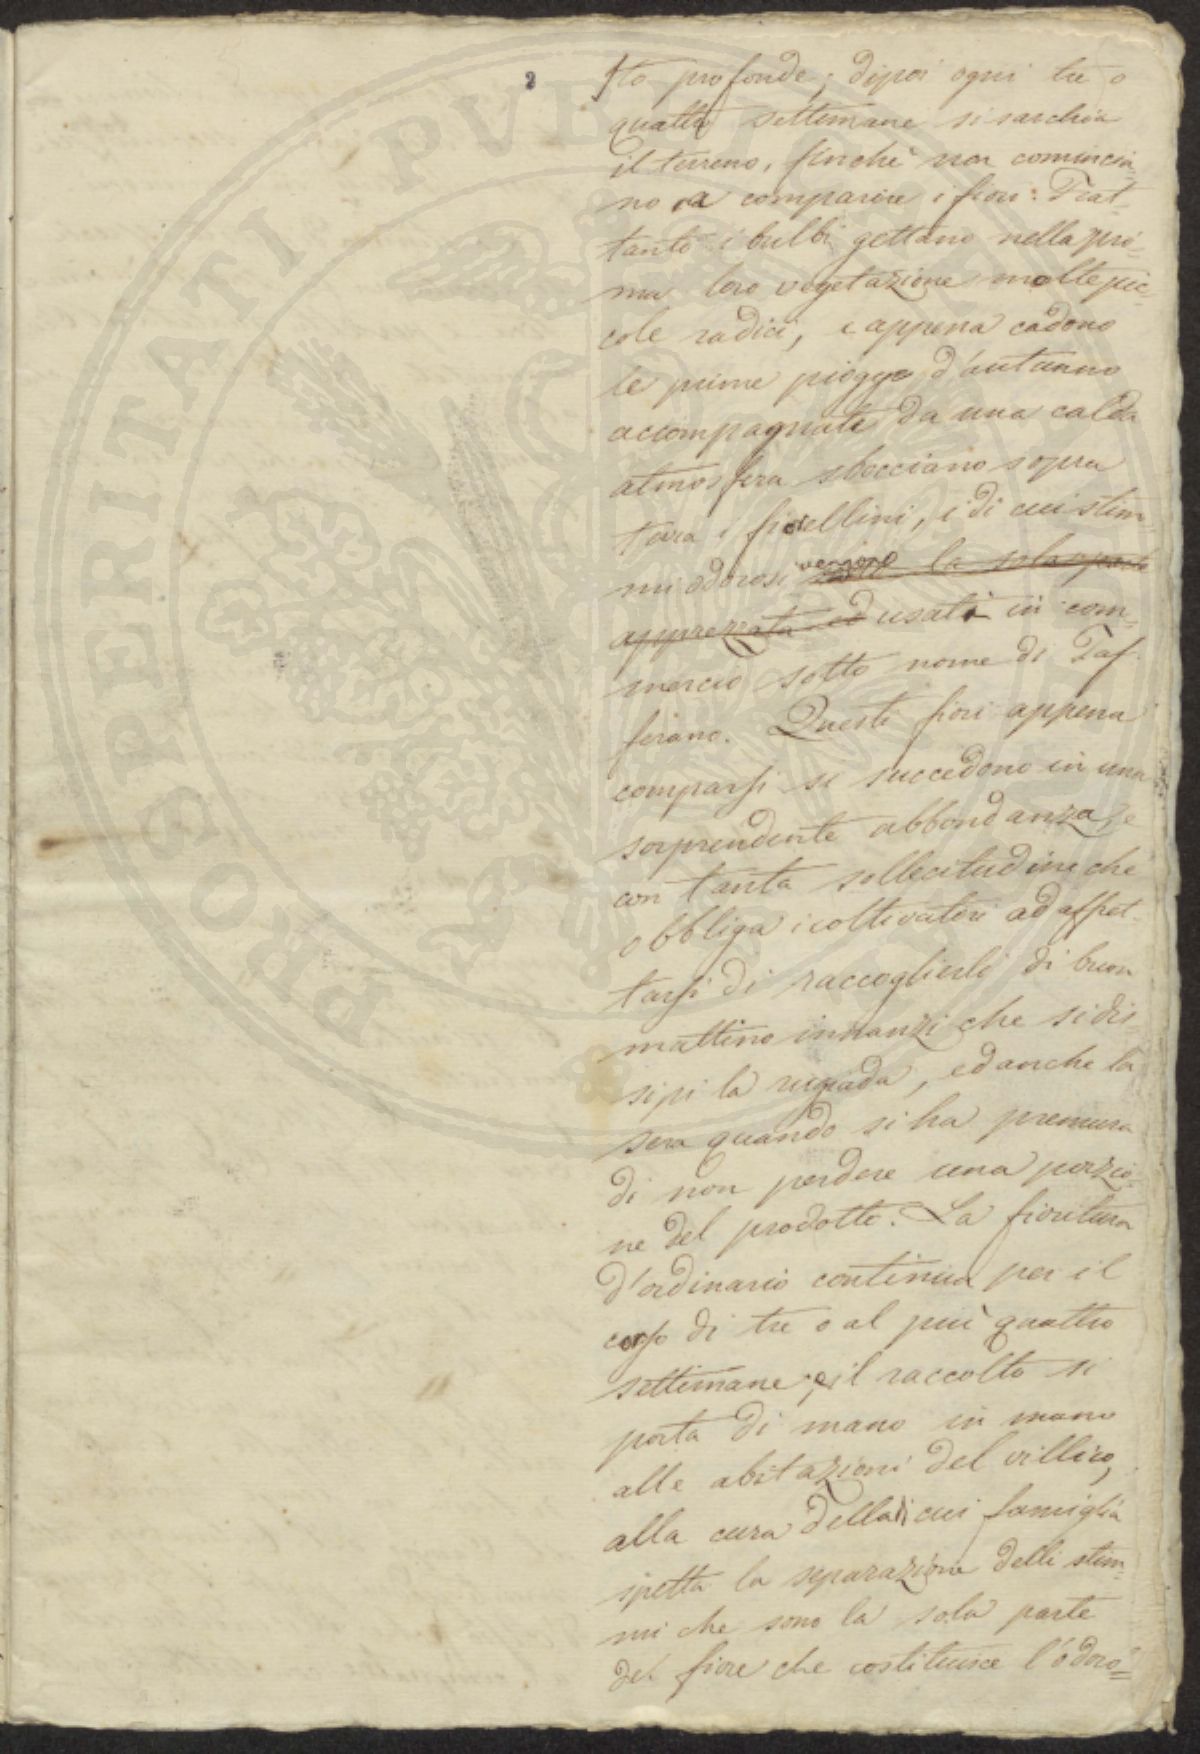 2
sto profonde; dipoi ogni tre o
quattro settimane si sarchia
il terreno, finchè non comincia-
no a comparire i fiori: Frat-
tanto i bulbi gettano nella pri-
ma loro vegetazione molte pic-
cole radici, e appena cadono
le prime piogge d'autunno
accompagnate da una calda
atmosfera sbocciano sopra
terra i fiorellini, i di cui stim-
mi odorosi vengono la sola parte
apprezzata ed usati in com-
mercio sotto nome di Zaf-
ferano. Questi fiori appena
comparsi si succedono in una
sorprendente abbondanza, e
con tanta sollecitudine che
obbliga i coltivatori ad affret-
tarsi di raccoglierli di buon
mattino innanzi che si dis-
sipi la rugiada, ed anche la
sera quando si ha premura
di non perdere una porzio-
ne del prodotto. La fioritura
d'ordinario continua per il
corso di tre o al più quattro
settimane, e il raccolto si
porta di mano in mano
alle abitazioni del villico,
alla cura della di cui famiglia
spetta la separazione delli stim-
mi che sono la sola parte
del fiore che costituisce l'odoro=
PROSPERITATI PVBLICAE